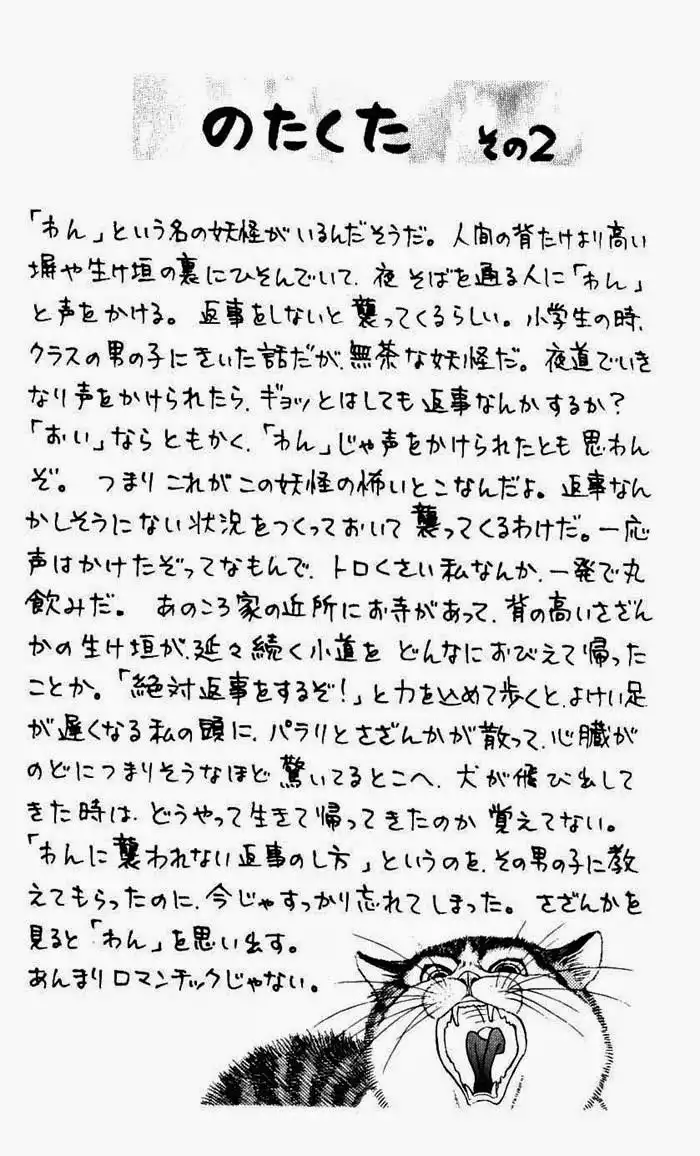 のたくた その2
「わん」という名の妖怪がいるんだそうだ。人間の背たけより高い
塀や生け垣の裏にひそんでいて、夜そばを通る人に「わん」
と声をかける。返事をしないと襲ってくるらしい。小学生の時、
クラスの男の子にきいた話だが、無茶な妖怪だ。夜道でいき
なり声をかけられたら、ギョッとはしても返事なんかするか?
「おい」ならともかく、「わん」じゃ声をかけられたとも思わん
ぞ。つまりこれがこの妖怪の怖いとこなんだよ。返事なん
かしそうにない状況をつくっておいて襲ってくるわけだ。一応
声はかけたぞってなもんで、トロくさい私なんか、一発で丸
飲みだ。あのころ家の近所にお寺があって、背の高いさざん
かの生け垣が、延々続く小道をどんなにおびえて帰った
ことか。「絶対返事をするぞ!」と力を込めて歩くと、よけい足
が遅くなる私の頭に、パラリとさざんかが散って、心臓が
のどにつまりそうなほど驚いてるとこへ、犬が飛び出して
きた時は、どうやって生きて帰ってきたのか覚えてない。
「わんに襲われない返事のし方」というのを、その男の子に教
えてもらったのに、今じゃすっかり忘れてしまった。さざんかを
見ると「わん」を思い出す。
あんまりロマンチックじゃない。